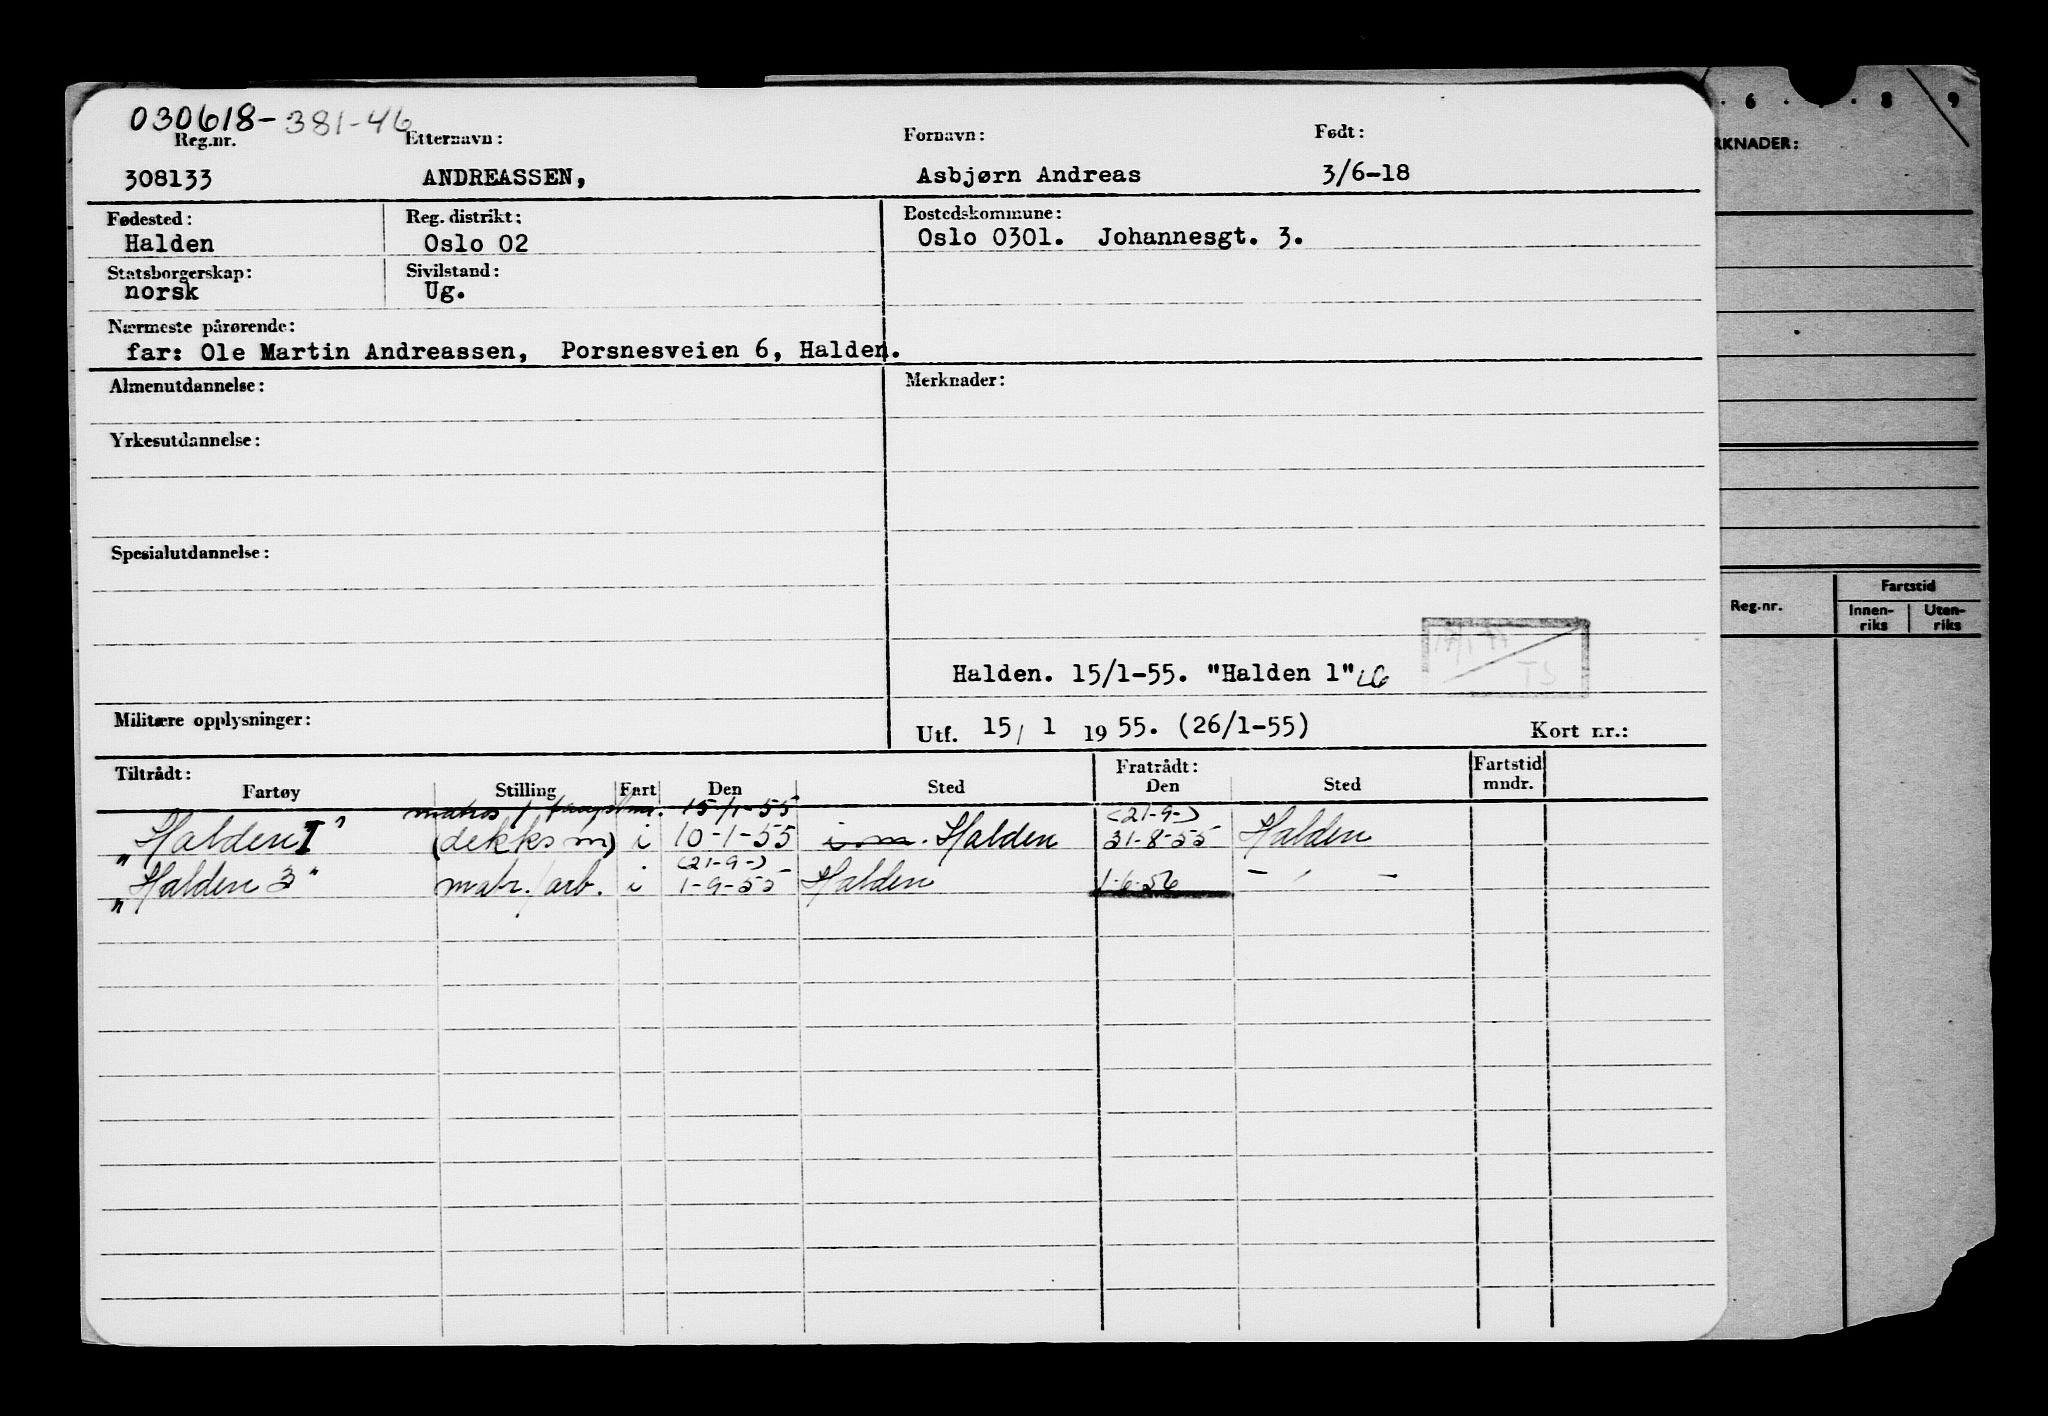 030618-381-46
Reg.nr. Etternavn: Fornavn: Født:
308133 ANDREASSEN, Asbjørn Andreas 3/6-18
Fødested: Reg. distrikt: Bostedskommune:
Halden Oslo 02 Oslo 0301. Johannesgt. 3.
Statsborgerskap: Sivilstand:
norsk Ug.
Nærmeste pårørende:
far: Ole Martin Andreassen, Porsnesveien 6, Halden.
Almenutdannelse: Merknader:
Yrkesutdannelse:
Spesialutdannelse:
Halden. 15/1-55. "Halden 1"
Militære opplysninger: Utf. 15/ 1 1955. (26/1-55) Kort nr.:
Tiltrådt: Fratrådt: Fartstid
Fartøy Stilling Fart Den Sted Den Sted mndr.
matros 15/1-55 (21-9-)
"Halden I" (dekksm) i 10-1-55 i m. Halden 31-8-55 Halden
(21-9-)
"Halden 3" matr./arb. i 1-9-55 Halden 1-6-56 - " -
6 . . 8 9
RKNADER:
Reg.nr. Fartstid
Innen-riks Uten-riks